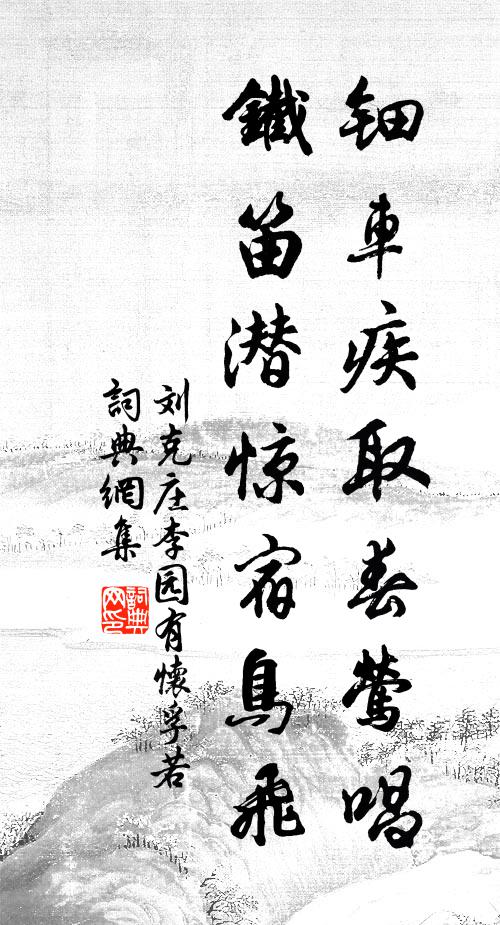 钿车疾取春莺唱
鐵笛潜惊宿鳥飛
刘克庄李园有懷孚若
詞典網集
詞典网印